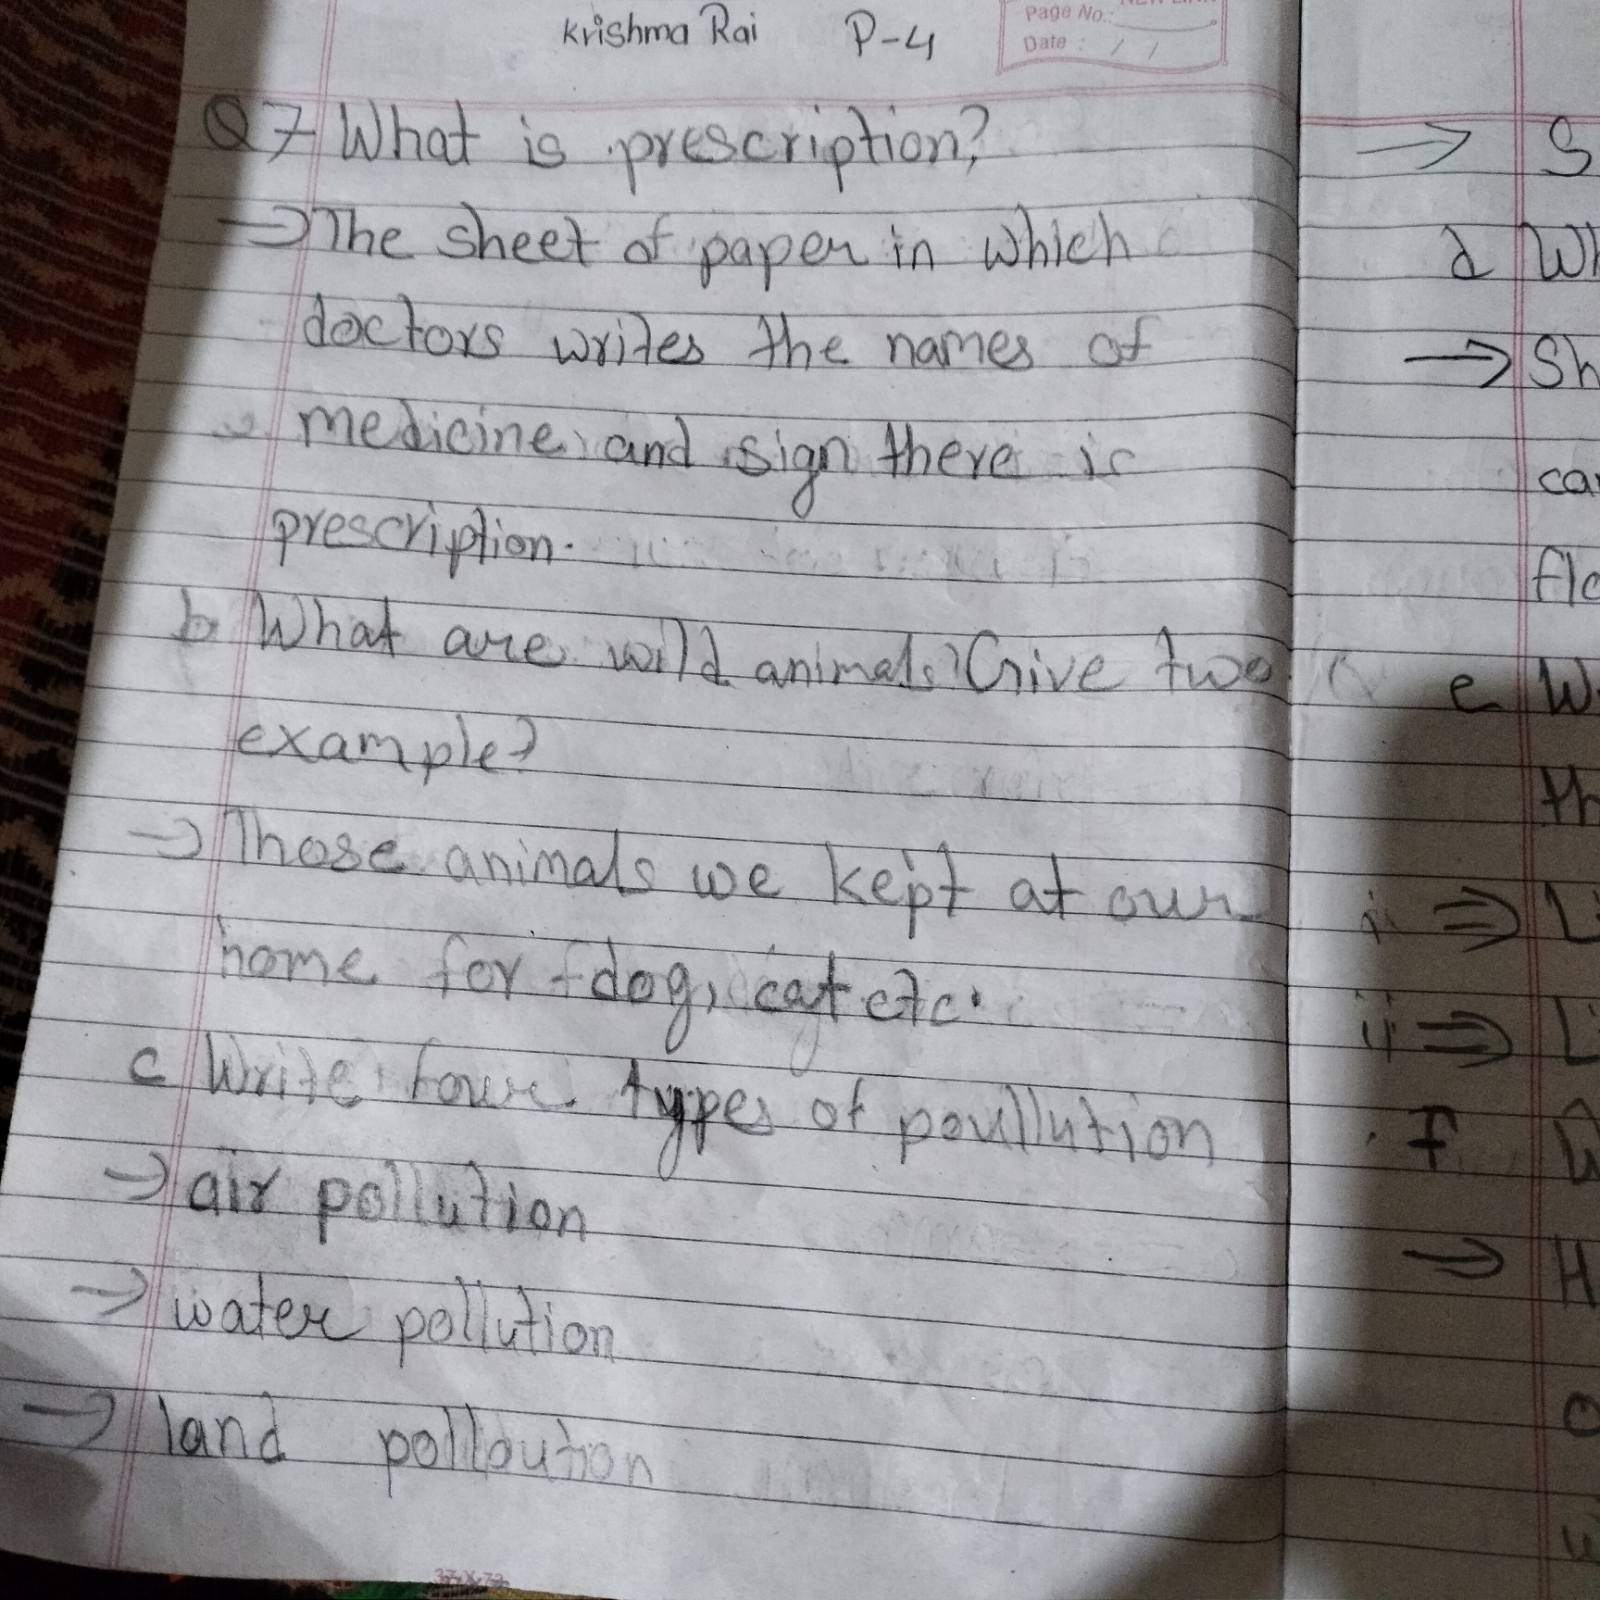 Krishma Rai P-4
Page No.:
Date : / /
Q7 What is prescription?
→ The sheet of paper in which
doctors writes the names of
medicine and sign there is
prescription.
b What are wild animals? Give two
example?
→ Those animals we kept at our
home for dog, cat etc.
c Write four types of poullution
→ air pollution
→ water pollution
→ land polloution
→ S
d Wh
→ Sh
ca
flo
e W
th
i ⇒ Li
ii ⇒ Li
f
→ H